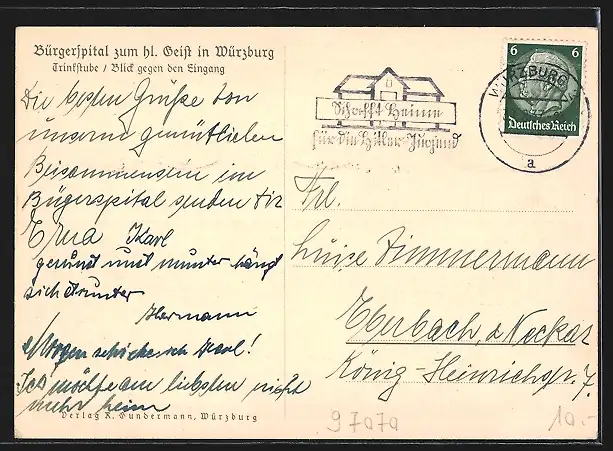 Bürgerspital zum hl. Geist in Würzburg
Trinkstube / Blick gegen den Eingang
Die besten Grüße von
unserm gemütlichen
Beisammensein im
Bügerspital senden Dir
Erna Karl
gesund und munter hängt
sich drunter
Hermann
Morgen schicke ich Karl!
Ich möchte am liebsten nicht
mehr heim
Verlag K. Gundermann, Würzburg
Schafft Heime
für die Hitler-Jugend
6 6
Deutsches Reich
WÜRZBURG
a
Frl.
Luise Zimmermann
Eberbach a Neckar
König-Heinrichstr. 7.
97070
10.-